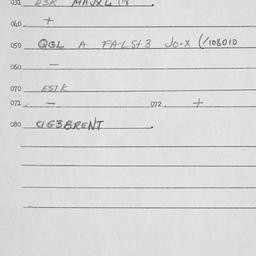 031 DSK MAJXL
040 +
050 QGL A FALSt3 Jo-X (/108010
060 —
070 ESTK
071 — 072 +
080 CIG3BRENT .